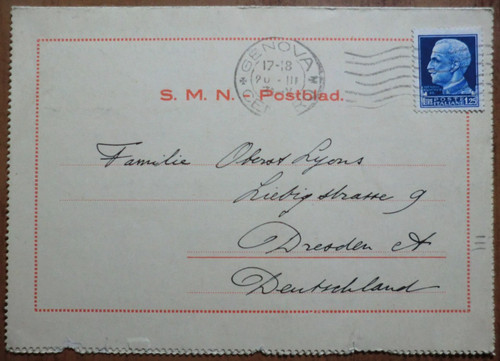 GENOVA
17-18
S. M. N. - Postblad.
Familie Oberst Lyons
Liebigstrasse 9
Dresden A
Deutschland